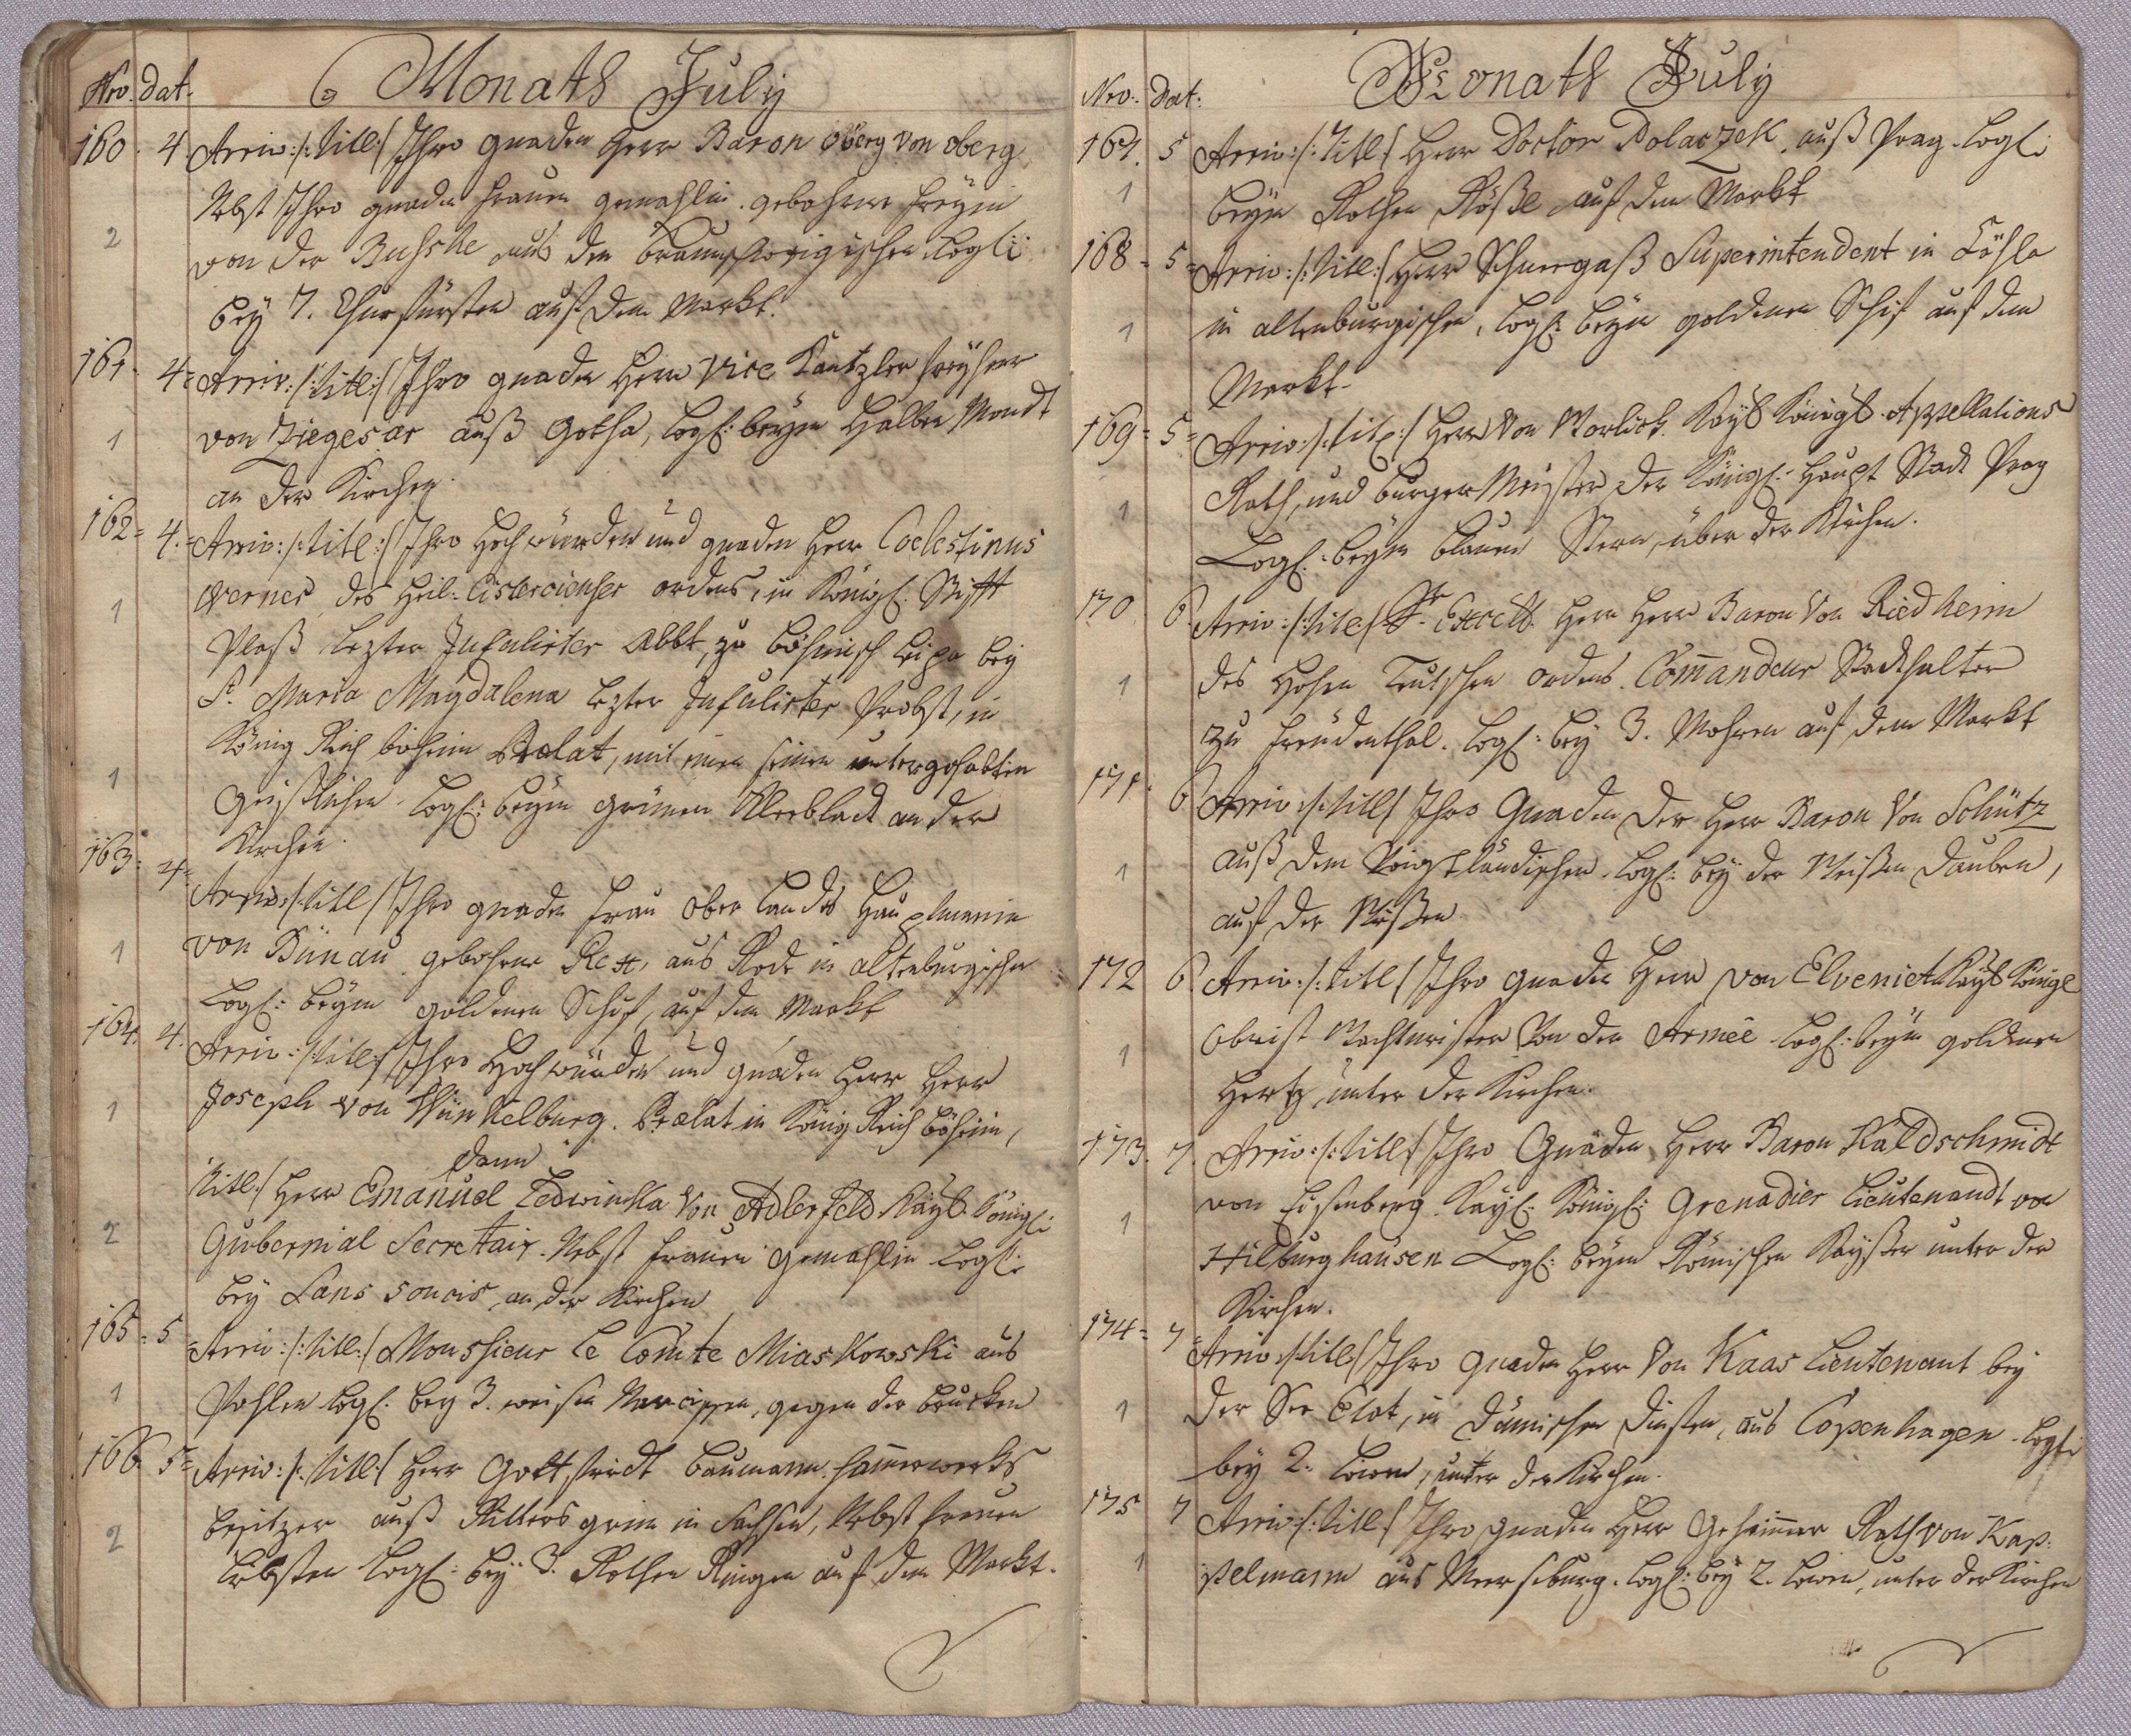 Nro. dat. Monath July
160. 4. Arriv:/:titl:/ Ihro gnaden Herr Baron Oberg von Oberg
Nebst Ihro gnaden Frauen gemahlin gebohrne Freyin
2 von der Bussche aus dem Braunschweigischen Logi:
bey 7. Churfürsten auf dem Markt.
161. 4. Arriv:/:titl:/ Ihro gnaden Herr Vice Kantzler Freyherr
1 von Ziegesar auß Gotha, Logl: beym Halben Mondt
an der Kirchen.
162. 4. Arriv:/:titl:/ Ihro Hochwürden und gnaden Herr Coelestinus
1 Werner des Heil: Cistercienser ordens, in Königl. Stifft
Plaß lezter Infulirter Abbt, zu Böhmisch Leipa bey
St. Maria Magdalena lezter Infulirter Probst, in
1 König Reich böheim Prælat, mit einen seinen untergehabten
Geistlichen. Logl: beym grünen Kleebladt an der
Kirchen.
163. 4. Arriv:/:titl:/ Ihro gnaden Frau Ober Landes Hauptmanin
1 von Bünau gebohrne Rex, aus Rode in altenburgischen
Logl: beym goldenen Schif, auf dem Markt
164. 4. Arriv:/:titl:/ Ihro Hochwürden und gnaden Herr Herr
1 Joseph von Wünkelburg. Prælat in König Reich Böheim,
dann
titl:/ Herr Emanuel Ledwinka Von Adlerfeld Kayl. Königl:
2 Gubernial Secretair. Nebst Frauen gemahlin Logl:
bey Sans soucis, an der Kirchen
165. 5. Arriv:/:titl:/ Monssieur le Comte Miaskowski aus
1 Pohlen Logl. bey 3. weisen Narcissen, gegen der brucken
166 5. Arriv:/:titl:/ Herr Gottfriedt Baumann Hamerwercks
besitzer auß Rittersgrün in Sachsen, Nebst Frauen
2 Liebsten Logl: bey 3. Rothen Ringen auf dem Markt.
Nro: Dat: Monath July
167. 5 Arriv:/:titl:/ Herr Doctor Polaczek, auß Prag. Logl:
1 beym Rothen Rößl auf dem Markt
168. 5. Arriv:/:titl:/ Herr Schurgaß Superintendent in Cahla
1 in altenburgischen, Logl: beym goldenen Schif auf dem
Markt.
169. 5. Arriv:/:titl:/ Herr Von Worlick Kayl Königl Appellations
1 Rath, und burgerMeister der Königl: Haupt Stadt Prag
Logl: beym blauen Stern, über der Kirchen.
170 6. Arriv:/:titl:/ Sr. Excell. Herr Herr Baron Von Riedheim
1 des Hohen Teutschen ordens Com̄andeur Stadthalter
zu Freudenthal. Logl: bey 3. Mohren auf dem Markt
171. 6 Arriv:/:titl:/ Ihro Gnaden der Herr Baron Von Schütz
1 auß dem Voigtländischen. Logl: bey der Weißen Dauben,
auf der Wießen
172 6. Arriv:/:titl:/ Ihro gnaden Herr von Elvenich Kayl Königl
1 Obrist Wachtmeister Von der Armée Logl: beym goldenen
Hertz, unter der Kirchen.
173. 7. Arriv:/:titl:/ Ihro Gnaden Herr Baron Kaldschmidt
1 von Eisenberg Kayl: Königl: Grenadier Lieutenandt von
Hilburghausen Logl: beym Römischen Kayßer unter der
Kirchen.
174. 7. Arriv:/:titl:/ Ihro gnaden Herr Von Kaas Lieutenant bey
1 der See Etat, in Dänischen Diensten, aus Copenhagen. Logl:
bey 2. Löwen, unter der Kirchen.
175 7 Arriv:/:titl:/ Ihro gnaden Herr Geheimer Rath von Kap:
1 pelmann aus Merseburg. Logl: bey 2. Löwen, unter der Kirchen